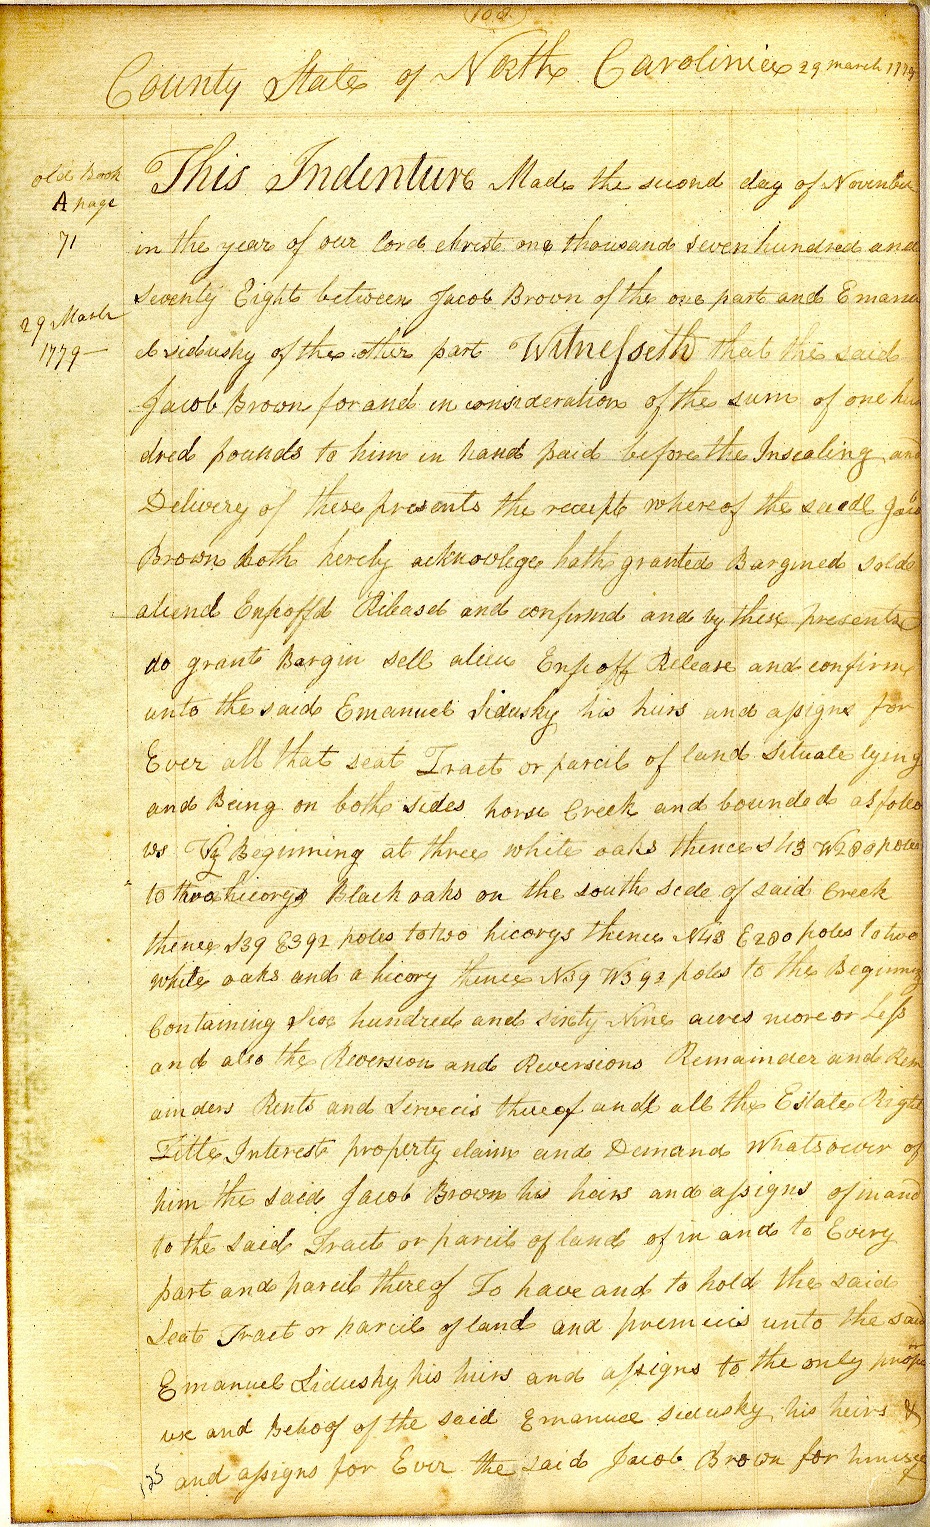 108
County State of North Carolinia 29 march 1779
old Book
A page
71
29 March
1779—
This Indenture Made the second day of November
in the year of our Lord christ one thousand seven hundred and
seventy Eight between Jacob Brown of the one part and Emanu
el sidusky of the other part Witnesseth that the said
Jacob Brown for and in consideration of the sum of one hun
dred pounds to him in hand paid before the Insealing and
Delivery of these presents the receipt whereof the said Jacob
Brown doth hereby acknowlege hath granted Bargined sold
aliend Enfeoffd Released and confirmd and by these presents
do grant Bargin sell alien Enfeoff Release and confirm
unto the said Emanuel Sidusky his heirs and assigns for
Ever all that seat Tract or parcel of land situate lying
and Being on both sides horse Creek and bounded as follo
ws Viz Beginning at three white oaks thence S43 W280 poles
to two hicorys Black oaks on the south side of said Creek
thence S39 E392 poles to two hicorys thence N43 E280 poles to two
white oaks and a hicory thence N39 W392 poles to the Beginning
Containing Six hundred and sixty Nine acres more or Less
and also the Reversion and Reversions Remainder and Rem
ainders Rents and Servecis thereof and all the Estate Right
Title Interest property claim and Demand Whatsoever of
him the said Jacob Brown his heirs and assigns of in and
to the said Tract or parcel of land of in and to Every
part and parcel thereof To have and to hold the said
Seat Tract or parcel of land and premicis unto the said
Emanuel Sidusky his heirs and assigns to the only proper
use and Behoof of the said Emanuel sidusky his heirs &
and assigns for Ever the said Jacob Brown for himself
125